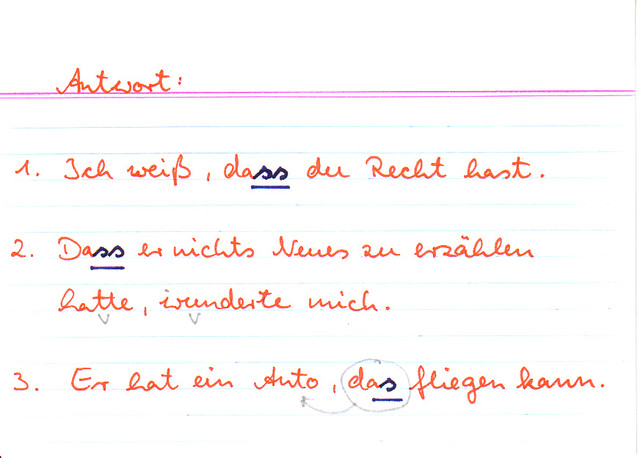 Antwort:
1. Ich weiß, dass du Recht hast.
2. Dass er nichts Neues zu erzählen
hatte, wunderte mich.
3. Er hat ein Auto, das fliegen kann.